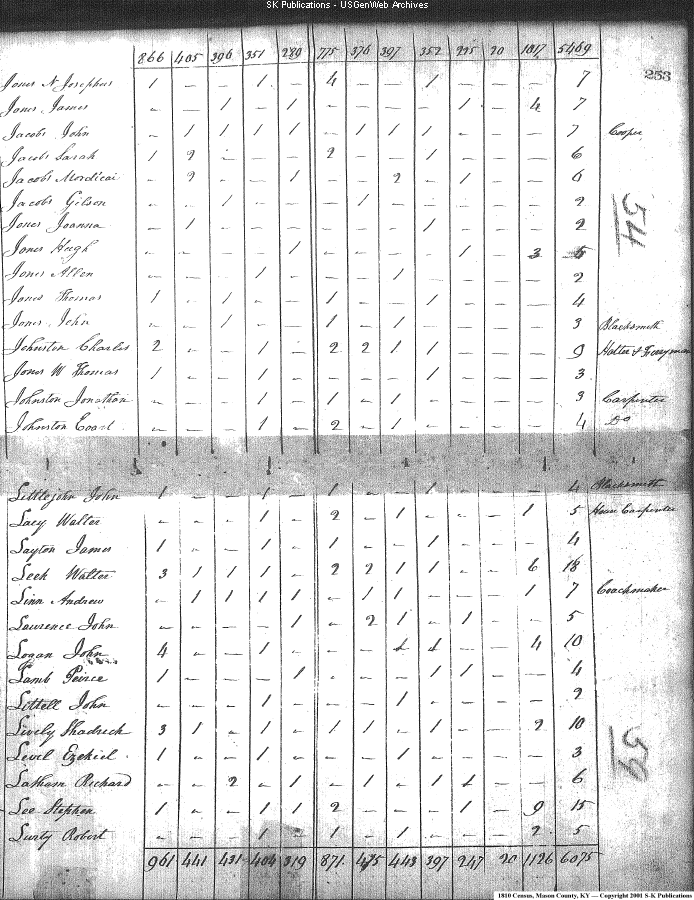 SK Publications - USGenWeb Archives
866 405 396 351 289 775 376 397 352 225 20 1017 5469
253
Jones N Josephus 1 – – 1 – 4 – – 1 – – – 7
Jones James – – 1 – 1 – – – – 1 – 4 7
Jacobs John – 1 1 1 1 – 1 1 1 – – – 7 Cooper
Jacobs Sarah 1 2 – – – 2 – – 1 – – – 6
Jacobs Mordicai – 2 – – 1 – – 2 – 1 – – 6
Jacobs Gilson – – 1 – – – 1 – – – – – 2
Jones Joanna – 1 – – – – – – 1 – – – 2
54
Jones Hugh – – – – 1 – – – – 1 – 3 5
Jones Allen – – – 1 – – – 1 – – – – 2
Jones Thomas 1 – 1 – – 1 – – 1 – – – 4
Jones John – – 1 – – 1 – 1 – – – – 3 Blacksmith
Johnston Charles 2 – – 1 – 2 2 1 1 – – – 9 Hatter & Ferryman
Jones W Thomas 1 – – 1 – – – – 1 – – – 3
Johnston Jonathan – – – 1 – 1 – 1 – – – – 3 Carpenter
Johnston – – – 1 – 2 – 1 – – – – 4 Do
Littlejohn John 1 – – 1 – 1 – – 1 – – – 4 Blacksmith
Lacy Walter – – – 1 – 2 – 1 – – – 1 5 House Carpenter
Layton James 1 – – 1 – 1 – – 1 – – – 4
Leek Walter 3 1 1 1 – 2 2 1 1 – – 6 18
Linn Andrew – 1 1 1 1 – 1 1 – – – 1 7 Coachmaker
Lawrence John – – – – 1 – 2 1 – 1 – – 5
Logan John 4 – – 1 – – – 1 1 – – 4 10
Lamb Peirce 1 – – – 1 – – – 1 1 – – 4
Littell John – – – 1 – – – 1 – – – – 2
Lively Shadrick 3 1 – 1 – 1 1 – 1 – – 2 10
59
Level Ezekiel 1 – – 1 – – – 1 – – – – 3
Latham Richard – – 2 – 1 – 1 – 1 1 – – 6
Lee Stephen 1 – – 1 1 2 – – – 1 – 9 15
Robert – – – 1 – 1 – 1 – – – 2 5
961 441 431 404 319 871 475 443 397 247 20 1126 6075
1810 Census, Mason County, KY — Copyright 2001 S-K Publications